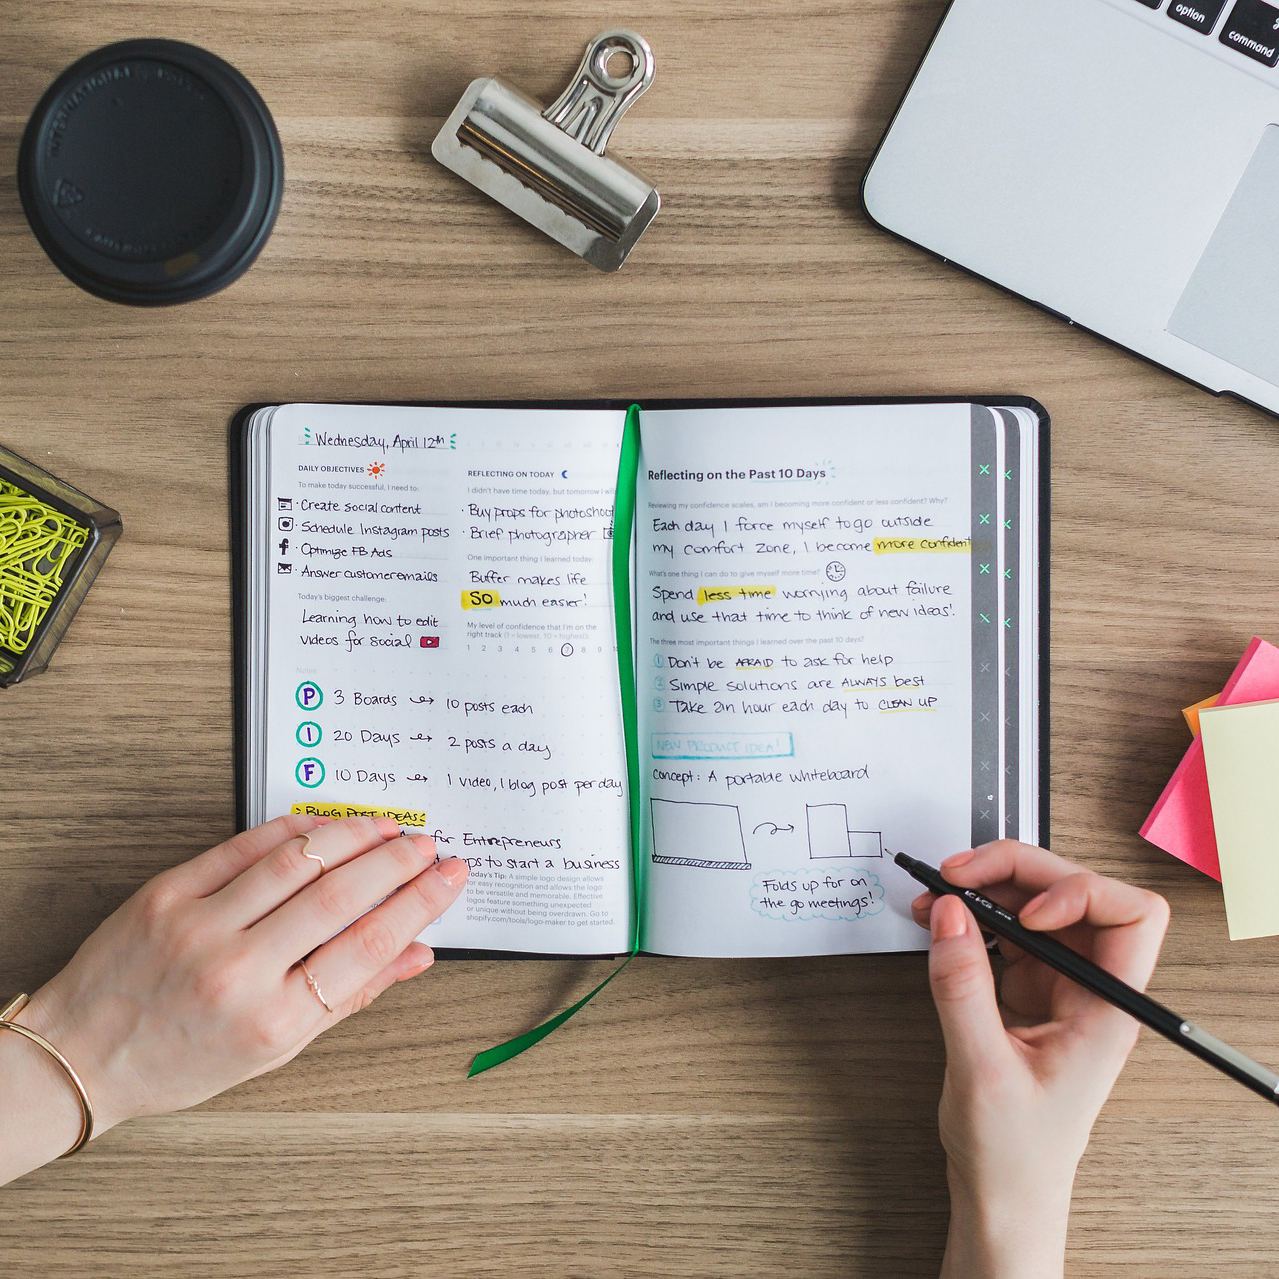 option
command
Wednesday, April 12th
DAILY OBJECTIVES
To make today successful, I need to:
· Create social content
· Schedule Instagram posts
· Optimize FB Ads
· Answer customer emails
Today's biggest challenge:
Learning how to edit
videos for social
Notes
P 3 Boards 10 posts each
I 20 Days 2 posts a day
F 10 Days 1 video, 1 blog post per day
BLOG POST IDEAS
for Entrepreneurs
to start a business
REFLECTING ON TODAY
I didn't have time today, but tomorrow I will
· Buy props for photoshoot
· Brief photographer
One important thing I learned today:
Buffer makes life
SO much easier!
My level of confidence that I'm on the
right track (1 = lowest, 10 = highest):
1 2 3 4 5 6 7 8 9
Today's Tip: A simple logo design allows
for easy recognition and allows the logo
to be versatile and memorable. Effective
logos feature something unexpected
or unique without being overdrawn. Go to
shopify.com/tools/logo-maker to get started.
Reflecting on the Past 10 Days
Reviewing my confidence scales, am I becoming more confident or less confident? Why?
Each day I force myself to go outside
my comfort zone, I become more confident
What's one thing I can do to give myself more time?
Spend less time worrying about failure
and use that time to think of new ideas!
The three most important things I learned over the past 10 days?
1 Don't be AFRAID to ask for help
2 Simple solutions are ALWAYS best
3 Take an hour each day to CLEAN UP
NEW PRODUCT IDEA!
Concept: A portable whiteboard
Folds up for on
the go meetings!